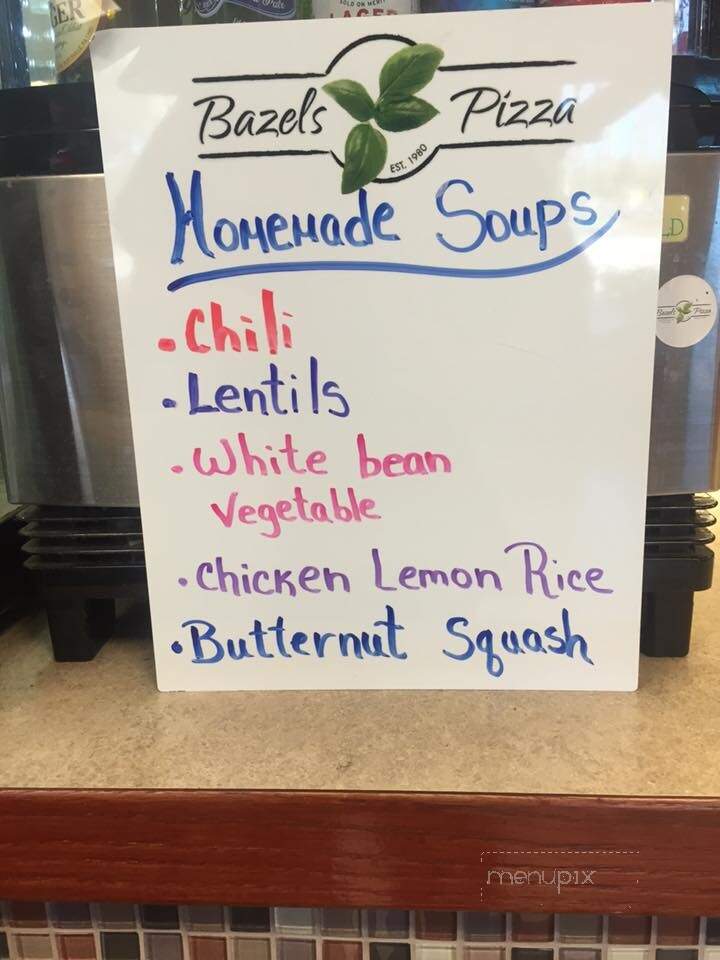 GER
SOLD ON MERIT
LAGER
Bazels Pizza
EST. 1980
Homemade Soups
• Chili
• Lentils
• White bean
Vegetable
• Chicken Lemon Rice
• Butternut Squash
D
Bazels Pizza
menupix